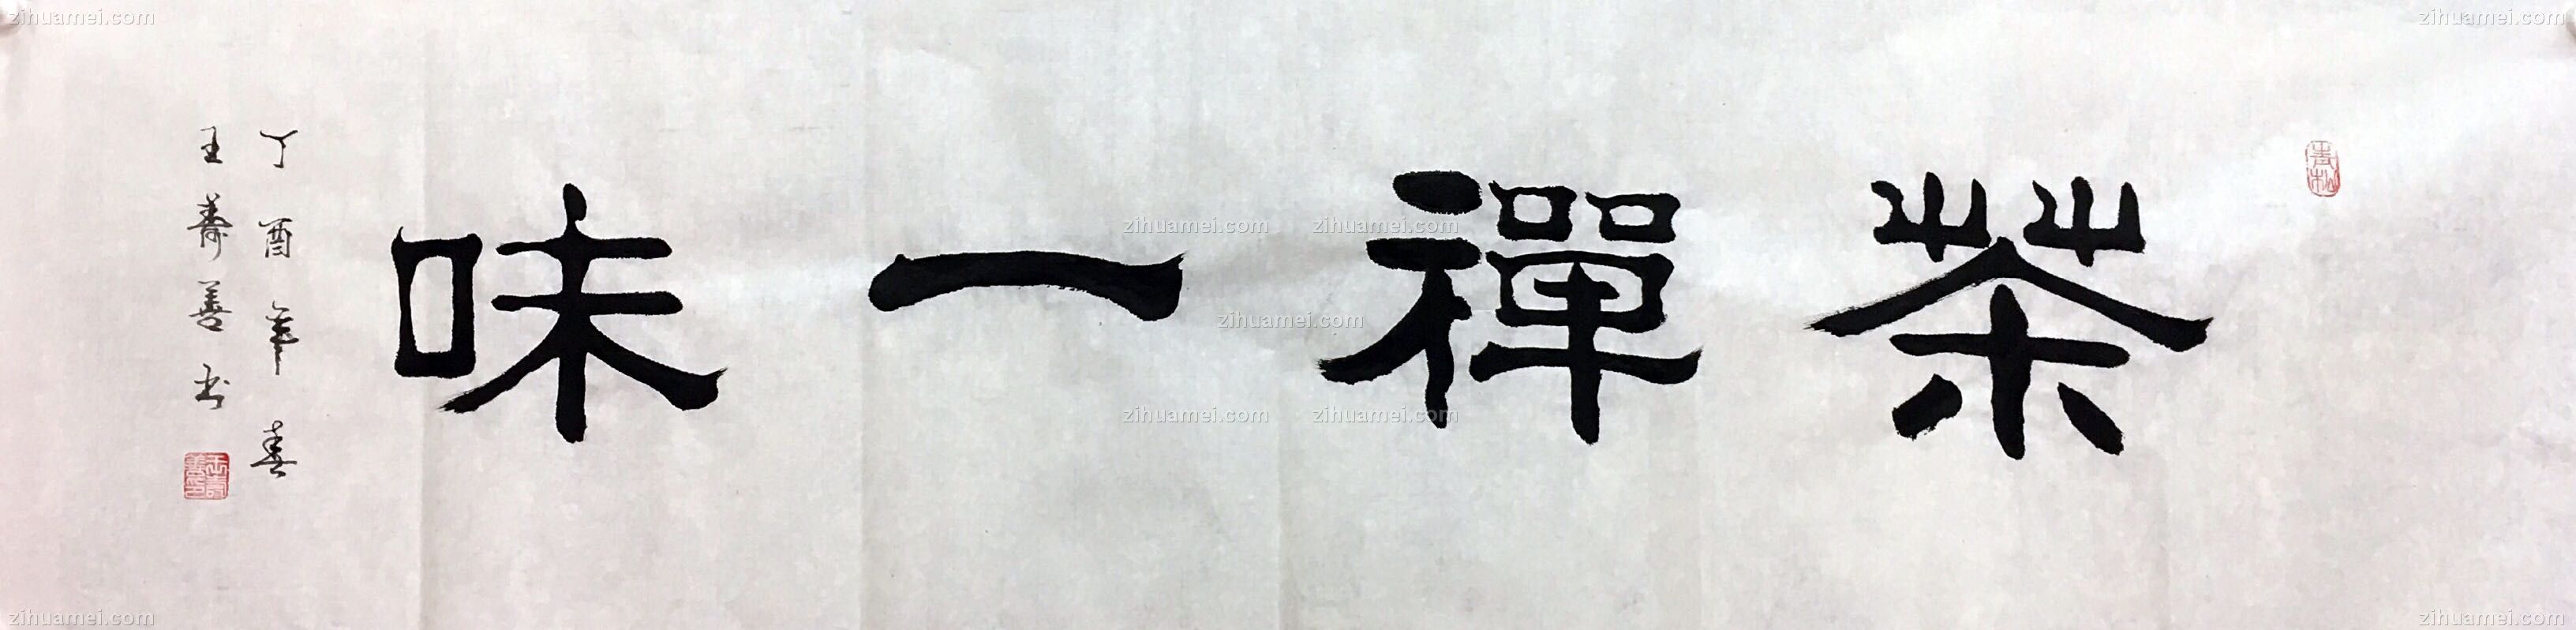 茶禪一味
丁酉年春
王壽善书
青松
王壽善印
zihuamei.com
zihuamei.com
zihuamei.com
zihuamei.com
zihuamei.com
zihuamei.com
zihuamei.com
zihuamei.com
zihuamei.com